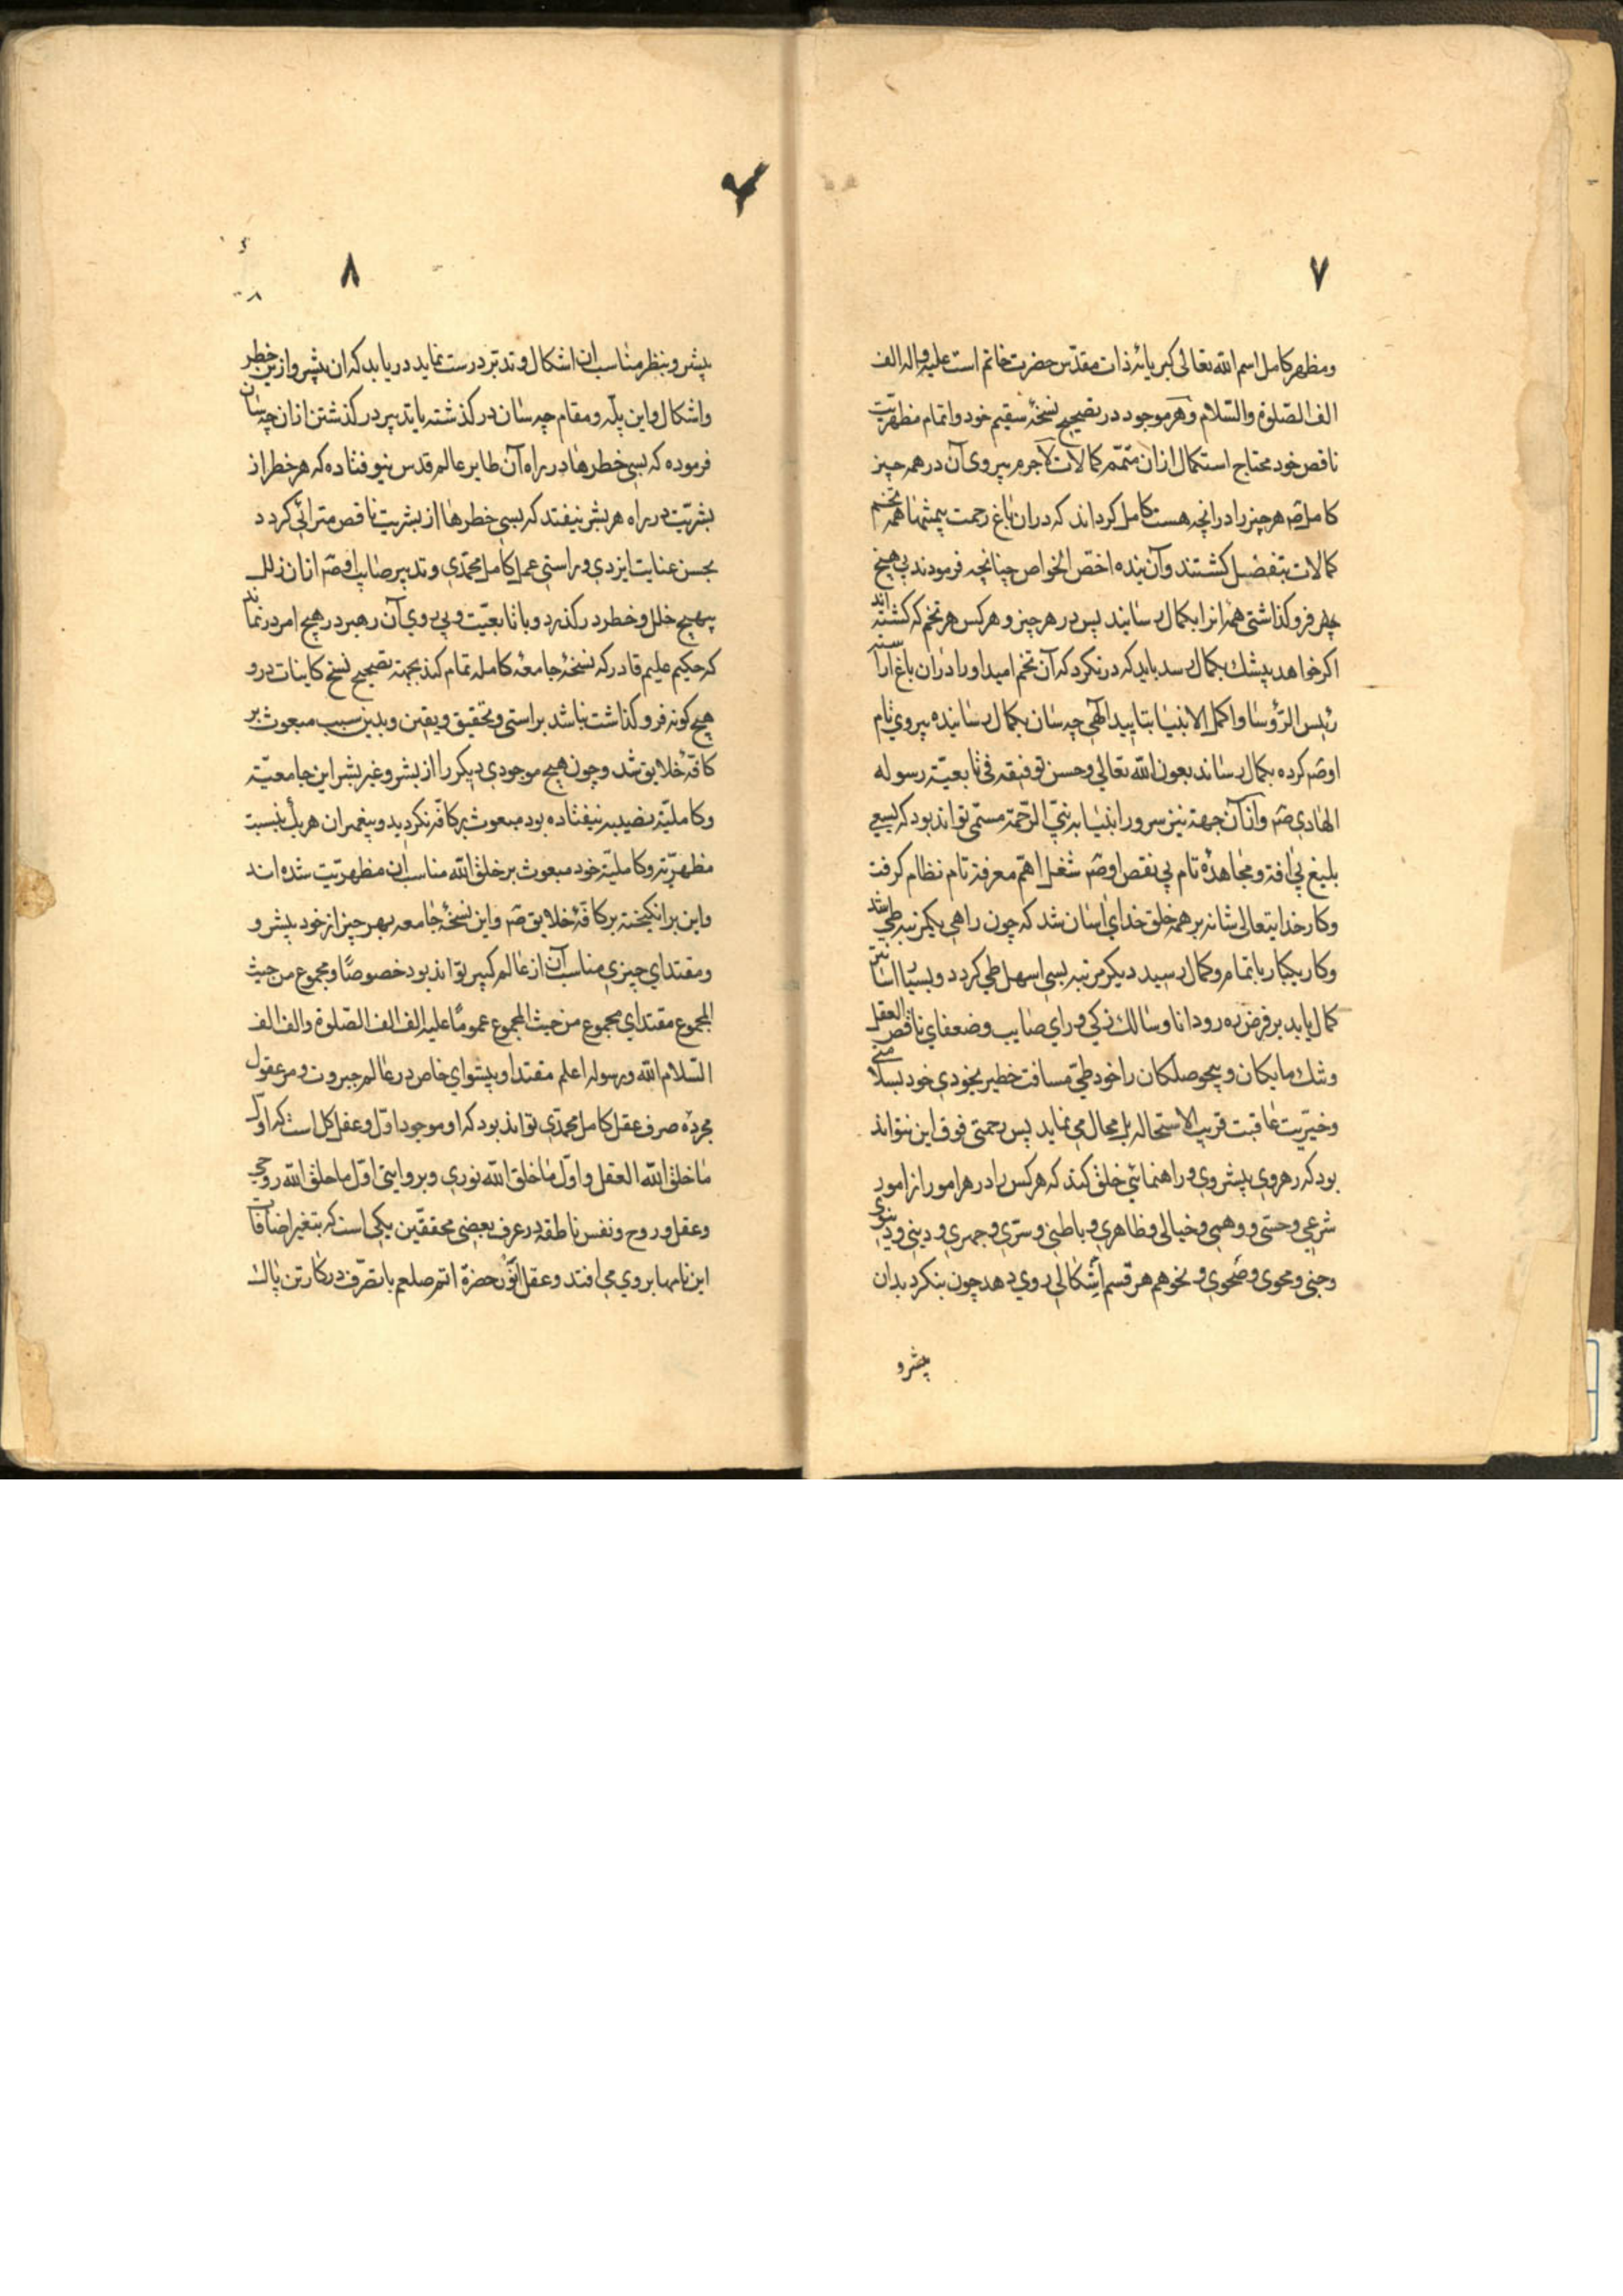 ۷
ومظهر کامل اسم الله تعالی کبریائه ذات مقدّس حضرت خاتم است علیه واله الف
الف الصّلوة والسّلام وهر موجود در تصحیح نسخهٔ سقیم خود واتمام مظهریّت
ناقص خود محتاج استکمال ازان متمّم کمالات لاجرم پیروی آن در همه چیز
کامل هر چیز را درانچه هست کامل کرداند که دران باغ رحمت همه تخم
کمالات کشتند وآن بنده اخصّ الخواص چنانچه فرمودند بی هیچ
فرو کذاشتی همه انرا بکمال رسانیند پس در هر چیز و هر کس هر تخم که کشته اند
اکر خواهد بکمال رسد باید که در نکرد که آن تخم امید او را دران باغ
رئیس الرّؤسا واکمل الانبیا بتایید الهی چه سان بکمال رسانیده پیروی تام
اوص کرده بکمال رساند بعون الله تعالی وحسن توفیقه فی تابعیّة رسوله
الهادی ص وازآن جهة نیز سرور انبیا به نبیّ الرّحمة مسمّی تواند بود که بسعی
بلیغ بی افة ومجاهدهٔ تام بی نقص اوص شغل اهمّ معرفة تام نظام کرفت
وکار خدایتعالی شانه بر همه خلق خدای اسان شد که چون راهی یکمرتبه طی شد
وکار یکبار باتمام وکمال رسید دیکر مرتبه بسی اسهل طی کردد وبسیار
کمال یابد بر فرض ره رو دانا وسالک زکی ورای صایب وضعفای ناقص العقل
وشک مایکان وبیحوصلکان را خود طیّ مسافت خطیر بخودی خود بسلامتی
وخیریت عاقبت قریب الاستحاله بل محال می نماید پس رحمتی فوق این نتواند
بود که رهروی پیشروی وراهنمائی خلق کند که هرکس را در هر امور از امور
شرعی وحسّی ووهمی وخیالی وظاهری وباطنی وسرّی وجهری ودینی ودنیوی
وجنی ومحوی وصحوی ونحوهم هر قسم اشکالی روی دهد چون بنکرد بدان
پیشرو
۸
پیشرو بنظر مناسب ان اشکال وتدبّر درست نماید دریابد که ان پیشرو ازین خطر
واشکال واین پلّه ومقام چه سان در کذشته یا تدبیر در کذشتن ازان چه سان
فرموده که بسی خطرها در راه آن طایر عالم قدس نیوفتاده که هر خطر از
بشریّت در راه هر بشر نیفتد که بسی خطرها از بشریت ناقص مترائی کردد
بحسن عنایت ایزدی وراستی عمل کامل محمّدی وتدبیر صایب اوص ازان زلل
بهیچ خلل وخطر در کذرد وبا تابعیّت وپی روی آن رهبر در هیچ امر در نماند
که حکیم علیم قادر که نسخهٔ جامعهٔ کامله تمام کند بجهة تصحیح نسخ کاینات درو
هیچ کونه فرو کذاشت نباشد براستی وتحقیق ویقین وبدین سبب مبعوث بر
کافّهٔ خلایق شد وچون هیچ موجودی دیکر را از بشر وغیر بشر این جامعیّة
وکاملیّة نصیب نیفتاده بود مبعوث بر کافّه نکردید وپیغمبران هریک بنسبت
مظهریّة وکاملیّة خود مبعوث بر خلق الله مناسب ان مظهریّت شده اند
واین برانکیخته بر کافّهٔ خلایق ص واین نسخهٔ جامعه بهر چیز از خود پیشرو
ومقتدای چیزی مناسب آن از عالم کبیر تواند بود خصوصًا ومجموع من حیث
المجموع مقتدای مجموع من حیث المجموع عمومًا علیه الف الف الصّلوة والف الف
السّلام الله ورسوله اعلم مقتدا وپیشوای خاص در عالم جبروت ومر عقول
مجردهٔ صرف عقل کامل محمّدی تواند بود که او موجود اوّل وعقل کل است که اوّل
ما خلق الله العقل واوّل ما خلق الله نوری وبروایتی اوّل ما خلق الله روحی
وعقل وروح ونفس ناطقه در عرف بعضی محققّین یکی است که بتغیر اضافات
این نامها بر وی می افتد وعقل انور حضرة صلعم با تصرّف در کار تن پاک